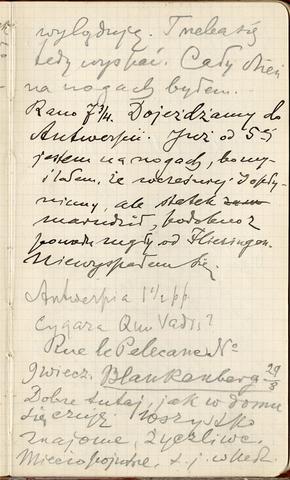 wygląduję. Trzeba się
tedy wyspać. Cały dzień
na nogach byłem.
Rano 7¾. Dojeżdżamy do
Antwerpii. Już od 5ej
jestem na nogach, bo my-
ślałem, że wcześniej
niemy, ale statek
marudził, podobno z
powodu mgły od Flissingen.
Niewyspałem się.
Antwerpia 1½ pp.
Cygara Quo Vadis?
Rue le Pelecane No
7 wiecz. Blankenberg 29/8
Dobrze tutaj, jak w domu
się czuję. Wszystko
znajome, życzliwe.
t. j. w hotel.